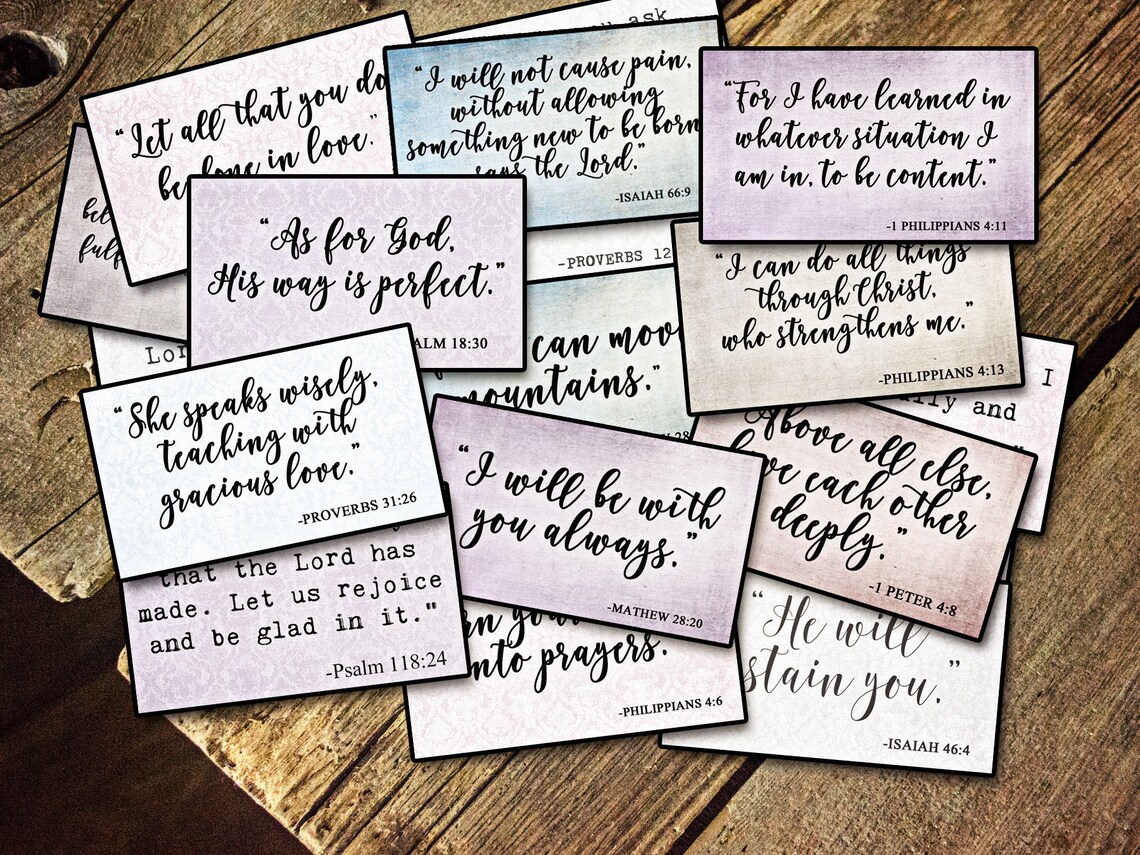 ask..
“Let all that you do
be done in love.”
“I will not cause pain,
without allowing
something new to be born
says the Lord.”
-ISAIAH 66:9
“For I have learned in
whatever situation I
am in, to be content.”
-1 PHILIPPIANS 4:11
“As for God,
His way is perfect.”
ALM 18:30
-PROVERBS 12
“I can do all things
through Christ,
who strengthens me.”
-PHILIPPIANS 4:13
can mov
mountains.”
28
I
and
“She speaks wisely,
teaching with
gracious love.”
-PROVERBS 31:26
“I will be with
you always.”
-MATHEW 28:20
Above all else,
love each other
deeply.”
-1 PETER 4:8
that the Lord has
made. Let us rejoice
and be glad in it."
-Psalm 118:24
into prayers.
-PHILIPPIANS 4:6
“He will
stain you.”
-ISAIAH 46:4